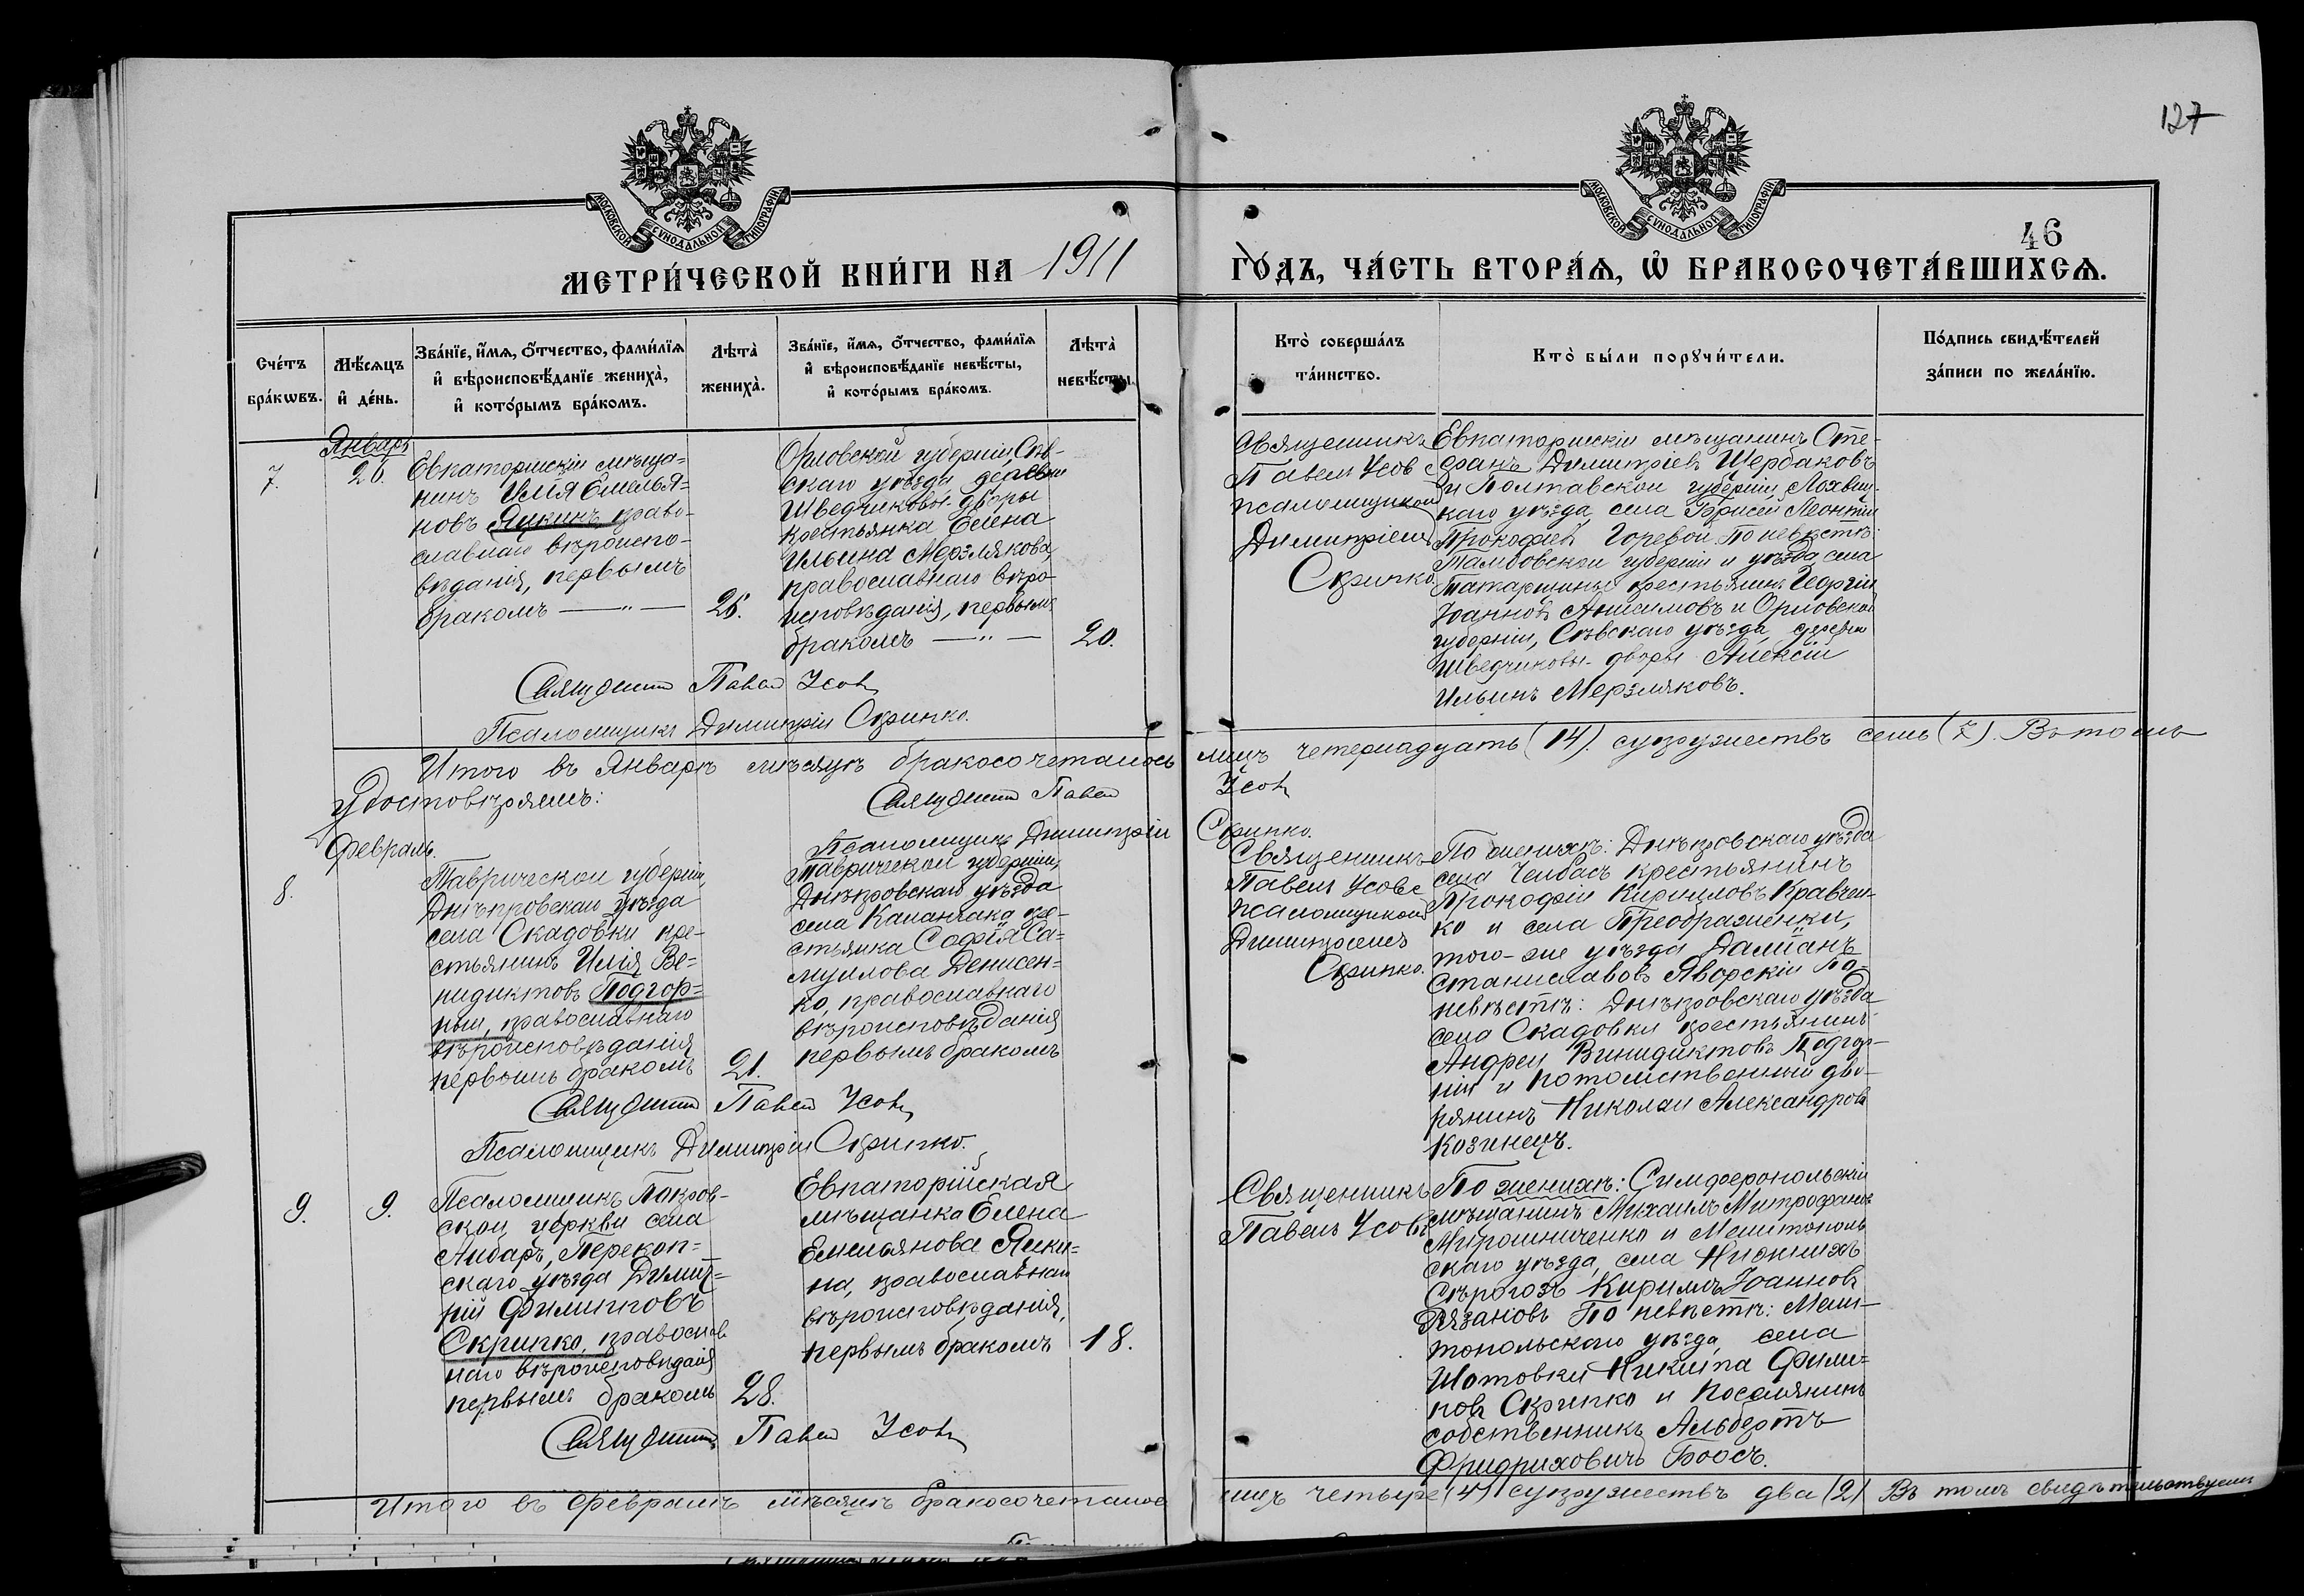 127
МОСКОВСКОЙ СУНОДАЛЬНОЙ ТИПОГРАФІИ
МОСКОВСКОЙ СУНОДАЛЬНОЙ ТИПОГРАФІИ
46
МЕТРИ́ЧЕСКОЙ КНИ́ГИ НА 1911
ГО́ДЪ, ЧА́СТЬ ВТОРА́Ѧ, Ѡ҆ БРАКОСОЧЕТА́ВШИХСѦ.
Счéтъ
брáкѡвъ.
Мѣ́сѧцъ
и҆ дéнь.
Звáнїе, и҆́мѧ, ѻ҆́тчество, фамѝлїѧ
и҆ вѣроисповѣ́данїе женихà,
и҆ котóрымъ брáкомъ.
Лѣтà
женихà.
Звáнїе, и҆́мѧ, ѻ҆́тчество, фамѝлїѧ
и҆ вѣроисповѣ́данїе невѣ́сты,
и҆ котóрымъ брáкомъ.
Лѣтà
невѣ́сты.
Ктò совершáлъ
тáинство.
Ктò бы́ли порꙋчи́тели.
Пóдпись свидѣ́телей
зáписи по желáнїю.
Январь
7.
26.
Евпаторійскій мѣща=
нинъ Илія Емелья=
новъ Яикинъ право-
славнаго вѣроиспо-
вѣданія, первымъ
бракомъ —„—
26.
Орловской губерніи, Сѣв-
скаго уѣзда деревни
Шведчиковы-дворы
крестьянка Елена
Ильина Мерзлякова,
православнаго вѣро-
исповѣданія, первымъ
бракомъ —„—
20.
Священникъ
Павелъ Усовъ с
псаломщикомъ
Димитріемъ
Скрипко.
Евпаторійскій мѣщанинъ Сте-
фанъ Димитріевъ Щербаковъ
и Полтавской губерніи, Лохвиц-
каго уѣзда, села Леонтій
Прокофіевъ Горевой По невѣстѣ:
Тамбовской губерніи и уѣзда села
Татарщины крестьянинъ Георгій
Іоанновъ Анисимовъ и Орловской
губерніи, Сѣвскаго уѣзда, деревни
Шведчиковы-дворы Алексій
Ильинъ Мерзляковъ.
Священникъ Павелъ Усовъ
Псаломщикъ Димитрій Скрипко.
Итого въ Январѣ мѣсяцѣ бракосочеталось лицъ четернадцать (14). супружествъ семь (7). Въ томъ
удостовѣряемъ:
Священникъ Павелъ Усовъ
Псаломщикъ Димитрій Скрипко.
Февраль.
8.
Таврической губерніи,
Днѣпровскаго уѣзда
села Скадовки кре-
стьянинъ Илія Ве=
нидиктовъ Подгор=
ный, православнаго
вѣроисповѣданія
первымъ бракомъ
21.
Таврической губерніи,
Днѣпровскаго уѣзда
села Каланчака кре-
стьянка Софія Са=
муилова Денисен=
ко, православнаго
вѣроисповѣданія
первымъ бракомъ
Священникъ
Павелъ Усовъ с
псаломщикомъ
Димитріемъ
Скрипко.
По женихѣ: Днѣпровскаго уѣзда
села Челбасъ крестьянинъ
Прокофій Кирилловъ Кравчен-
ко и села Преображенки,
того-же уѣзда Даміанъ
Станиславовъ Яворскій По-
невѣстѣ: Днѣпровскаго уѣзда
села Скадовки крестьянинъ
Андрей Винидиктовъ Подгор-
ній и потомственный дво-
рянинъ Николай Александровъ
Козинецъ.
Священникъ Павелъ Усовъ
Псаломщикъ Димитрій Скрипко.
9.
9.
Псаломщикъ Покров-
ской церкви села
Анбаръ, Перекоп=
скаго уѣзда Димит=
рій Филипповъ
Скрипко, православ
наго вѣроисповѣданія
первымъ бракомъ
28.
Евпаторійская
мѣщанка Елена
Емельянова Яики=
на, православнаго
вѣроисповѣданія,
первымъ бракомъ
18.
Священникъ
Павелъ Усовъ
По женихѣ: Симферопольскій
мѣщанинъ Михаилъ Митрофановъ
Мирошниченко и Мелитополь
скаго уѣзда, села Нижнихъ
Сѣрогозъ Кириллъ Іоанновъ
Рязановъ По невѣстѣ: Мели-
топольскаго уѣзда, села
Шотовки Никита Филип=
повъ Скрипко и поселянинъ
собственникъ Альбертъ
Фридриховичъ Боосъ.
Священникъ Павелъ Усовъ
Итого въ Февралѣ мѣсяцѣ бракосочеталось лицъ четыре (4) супружествъ два (2) Въ томъ свидѣтельствуемъ